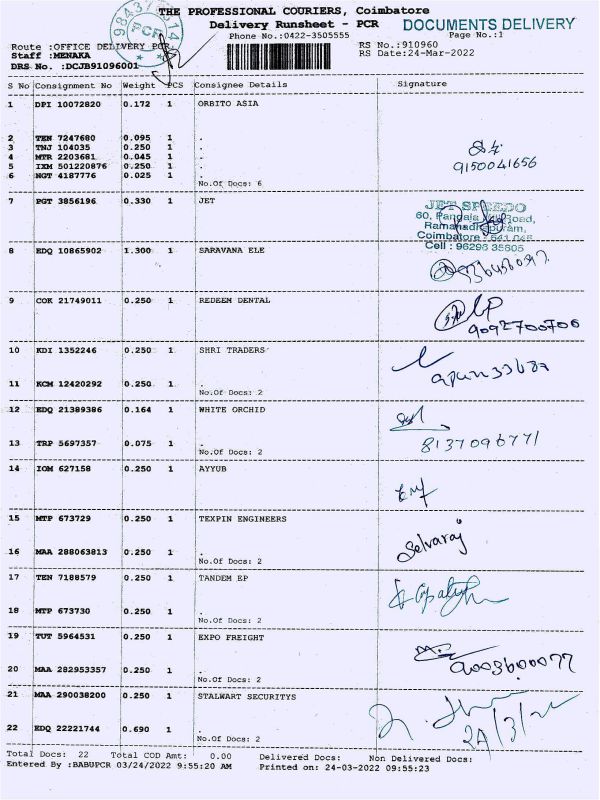 THE PROFESSIONAL COURIERS, Coimbatore
Delivery Runsheet - PCR DOCUMENTS DELIVERY
Phone No.:0422-3505555 Page No.:1
Route :OFFICE DELIVERY PCR RS No.:910960
Staff :MENAKA RS Date:24-Mar-2022
DRS No. :DCJB91096001
S No Consignment No Weight PCS Consignee Details Signature
1 DPI 10072820 0.172 1 ORBITO ASIA
2 TEN 7247680 0.095 1 .
3 TNJ 104035 0.250 1 .
4 MTR 2203681 0.045 1 .
5 IXM 501220876 0.250 1 .
6 NGT 4187776 0.025 1 .
9150041656
No.Of Docs: 6
7 PGT 3856196 0.330 1 JET
JET SPEEDO
60, Road,
Ramanadhapuram,
Coimbatore - 641 045
Cell : 96296 35805
8 EDQ 10865902 1.300 1 SARAVANA ELE
9 COK 21749011 0.250 1 REDEEM DENTAL
9092700706
10 KDI 1352246 0.250 1 SHRI TRADERS
11 KCM 12420292 0.250 1 .
No.Of Docs: 2
12 EDQ 21389386 0.164 1 WHITE ORCHID
13 TRP 5697357 0.075 1 .
8137096771
No.Of Docs: 2
14 IOM 627158 0.250 1 AYYUB
15 MTP 673729 0.250 1 TEXPIN ENGINEERS
Selvaraj
16 MAA 288063813 0.250 1 .
No.Of Docs: 2
17 TEN 7188579 0.250 1 TANDEM EP
18 MTP 673730 0.250 1 .
No.Of Docs: 2
19 TUT 5964531 0.250 1 EXPO FREIGHT
9003600077
20 MAA 282953357 0.250 1 .
No.Of Docs: 2
21 MAA 290038200 0.250 1 STALWART SECURITYS
22 EDQ 22221744 0.690 1 .
No.Of Docs: 2
Total Docs: 22 Total COD Amt: 0.00 Delivered Docs: Non Delivered Docs:
Entered By :BABUPCR 03/24/2022 9:55:20 AM Printed on: 24-03-2022 09:55:23